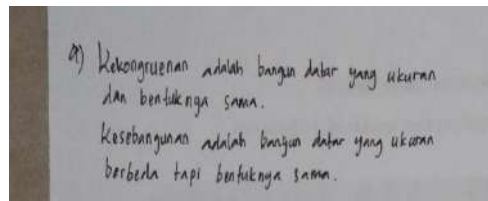 a) Kekongruenan adalah bangun datar yang ukuran
dan bentuknya sama.
Kesebangunan adalah bangun datar yang ukuran
berbeda tapi bentuknya sama.